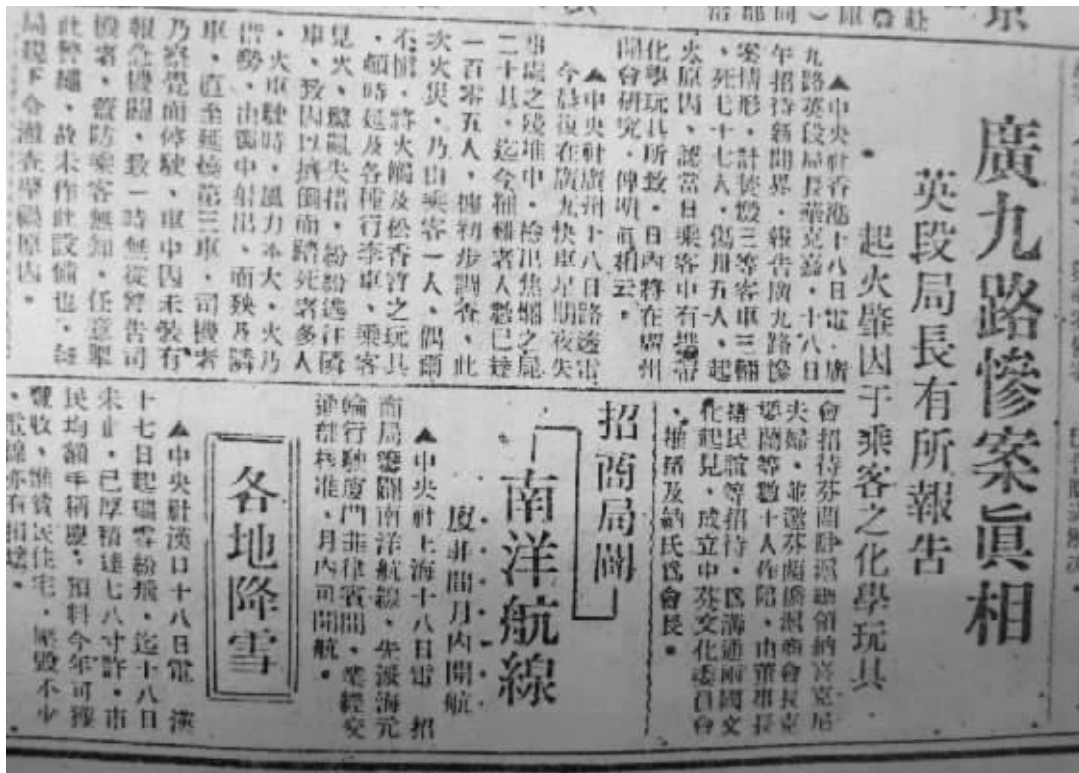 廣九路慘案眞相
英段局長有所報告
起火肇因于乘客之化學玩具
▲中央社香港十八日電 廣
九路英段局長華克嘉、十八日
午招待新聞界、報告廣九路慘
案情形、計焚毀三等客車三輛
、死七十七人、傷卅五人、起
火原因、認當日乘客中有攜帶
化學玩具所致、日內將在廣州
開會研究、俾明眞相云。
▲中央社廣州十八日路透電
今晨復在廣九快車星期夜失
事處之殘堆中、檢出焦爛之屍
二十具、迄今罹難者人數已達
一百零五人、據初步調查、此
次火災、乃由乘客一人、偶爾
不慎、將火觸及松香質之玩具
、頗時延及各種行李車、乘客
見火、驚亂失措、紛紛逃往隣
車、致因以擠倒而踏死者多人
、火車駛時、風力本大、火乃
出勢、由窗中射出、而殃及隣
車、直至延燒第三車、司機者
乃察覺而停駛、車中因未裝有
報急機關、致一時無從警告司
機者、蓋防乘客無知、任意擊
此警繩、故未作此設備也、
局現下令澈查肇禍原因。
會招待芬蘭駐滬總領納喜克尼
夫婦、並邀芬蘭僑滬商會長克
蘭等數十人作陪、由董事長
褚民誼等招待、爲溝通兩國文
化起見、成立中芬文化委員會
、推褚及納氏爲會長。
招商局開
南洋航線
廈菲間月內開航
▲中央社上海十八日電 招
商局籌闢南洋航線、先派海元
輪行駛廈門菲律賓間、業經交
通部核准、月內可開航。
各地降雪
▲中央社漢口十八日電 漢
十七日起瑞雪紛飛、迄十八日
未止、已厚積達七八寸許、市
民均額手稱慶、預料今年可獲
豐收、惟貧民住宅、壓毀不少
、電線亦有損壞。